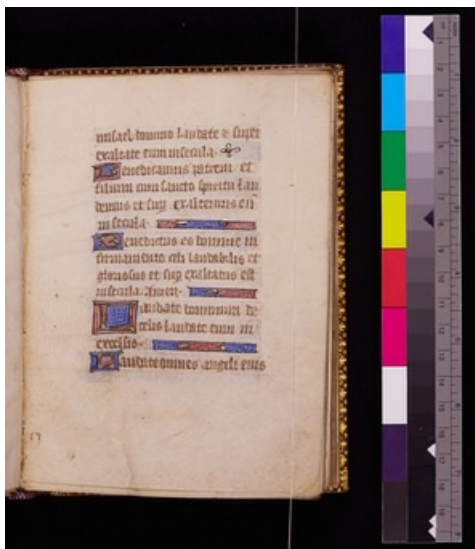 misael domino laudate & super
exaltate eum in secula.
Benedicamus patrem et
filium cum sancto spiritu lau
demus et sup exaltemus eū
in secula.
Benedictus es domine in
firmamento celi laudabilis et
gloriosus et sup exaltatus est
in secula. Amen.
Laudate dominum de
celis laudate eum in
excelsis.
Laudate omnes angeli eius
17